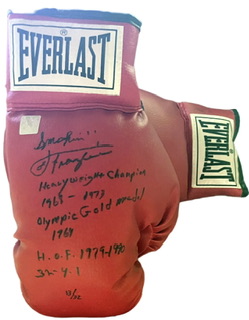 EVERLAST
EVERLAST
Smokin'
J Frazier
Heavyweight Champion
1968 - 1973
Olympic Gold medal
1964
H.O.F. 1979-1990
32-4-1